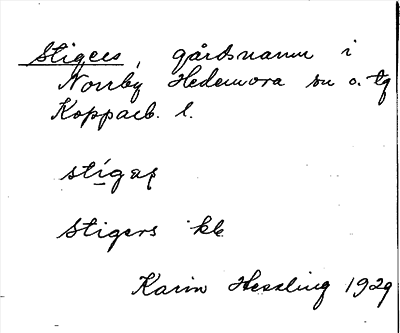 Stigers, gårdsnamn i
Norrby Hedemora sn o. tg
Kopparb. l.
stígaʂ
Stigers kb
Karin Hessling 1929